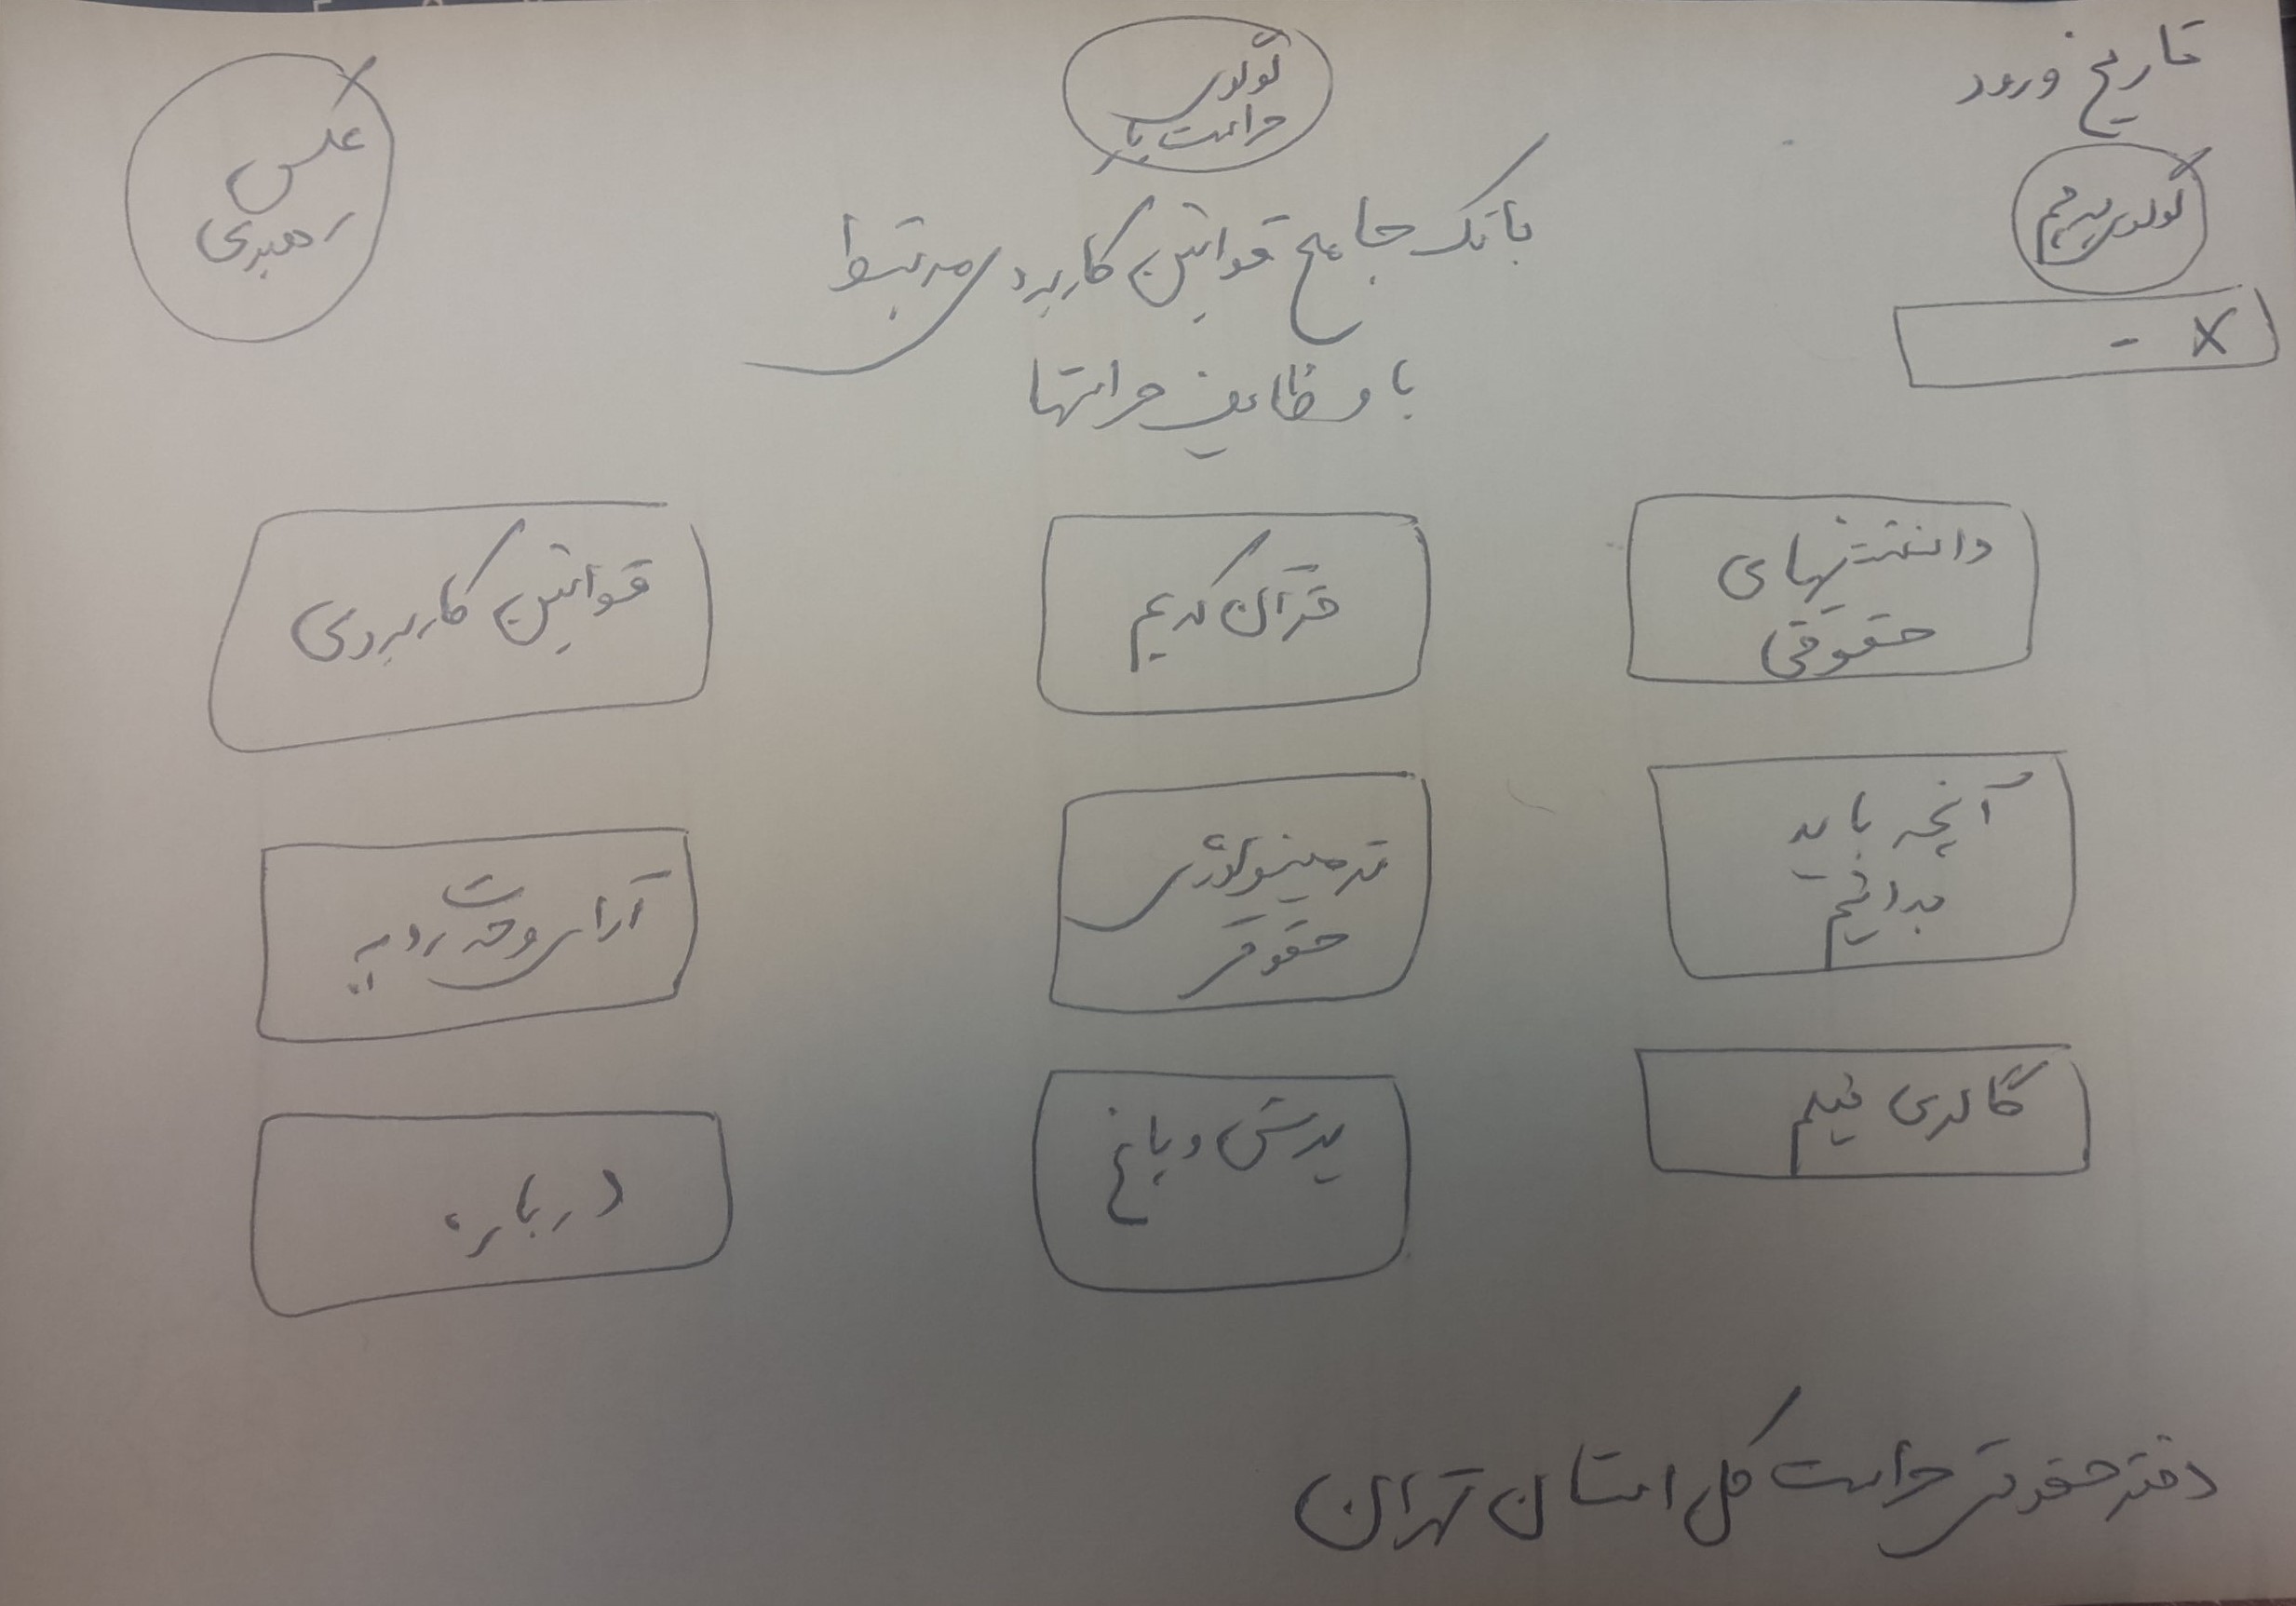 تاریخ ورود
لوگوی
حراست
لوگوی پرچم
عکس
رهبری
× -
بانک جامع قوانین کاربردی مرتبط
با وظایف حراستها
دانستنیهای
حقوقی
قرآن کریم
قوانین کاربردی
آنچه باید
بدانیم
ترمینولوژی
حقوقی
آرای وحدت رویه
گالری فیلم
پرسش و پاسخ
درباره
دفتر حقوقی حراست کل استان تهران